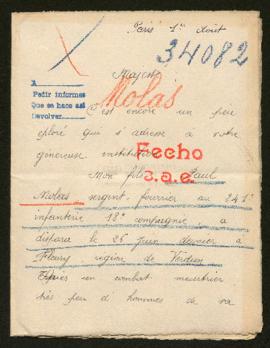 Paris 1er Août
34082
Majesté
A
Pedir informes
Que se hace asi
Devolver
Molas
C'est encore un père
éploré qui s'adresse à votre
généreuse institution
Fecho
s.a.e.
Mon fils Paul
Molas sergent fourrier au 241e
infanterie 18e compagnie, a
disparu le 26 Juin dernier à
Fleury région de Verdun
Après un combat meurtrier
très peu d'hommes de sa